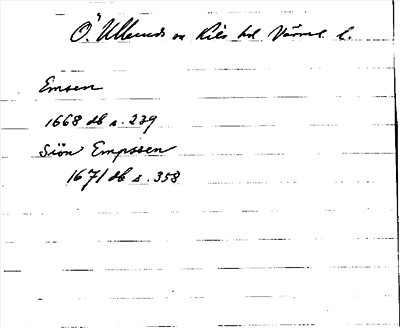 Ö. Ullerud sn Kils hd Värml l.
Emsen
1668 db s. 229
Siön Empssen
1671 db s. 358